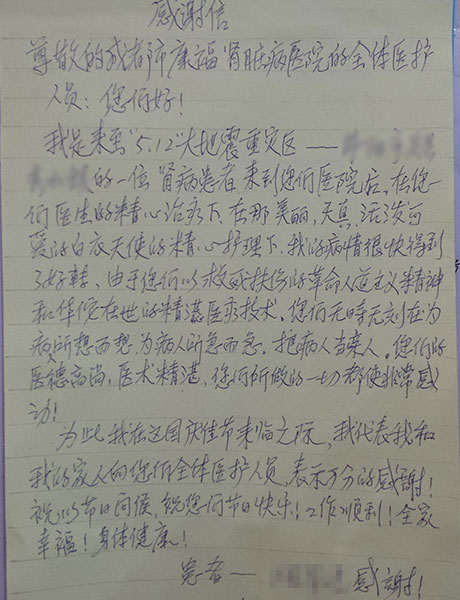 感谢信
尊敬的成都市康福肾脏病医院的全体医护
人员：您们好！
我是来至“5.12”大地震重灾区——
的一位肾病患者来到您们医院后，在您
们医生的精心治疗下，在那美丽，天真活泼可
爱的白衣天使的精心护理下，我的病情很快得到
了好转，由于您们以救死扶伤的革命人道主义精神
和华佗在世的精湛医秀技术，您们无时无刻在为
病所想而想，为病人所急而急，把病人当亲人，您们的
医德高尚，医术精湛，您们所做的一切都使非常感
动！
为此我在这国庆佳节来临之际，我代表我和
我的家人向您们全体医护人员，表示万分的感谢！
祝以节日问候，祝您们节日快乐！工作顺利！全家
幸福！身体健康！
患者——感谢！